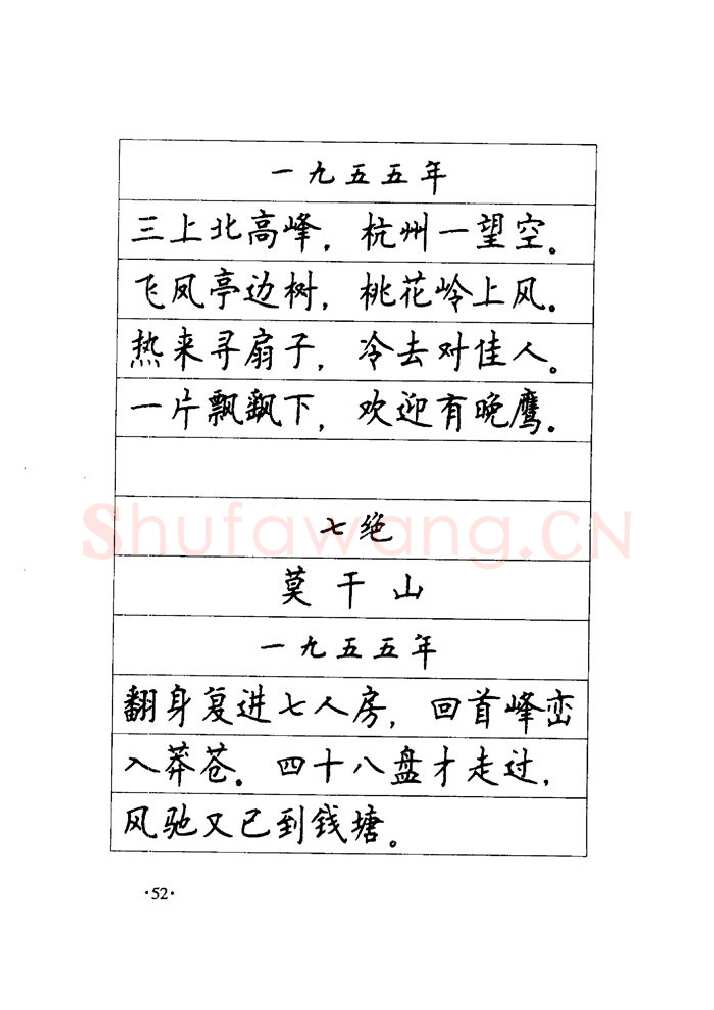 一九五五年
三上北高峰，杭州一望空。
飞凤亭边树，桃花岭上风。
热来寻扇子，冷去对佳人。
一片飘飖下，欢迎有晚鹰。
七绝
Shufawang.CN
莫干山
一九五五年
翻身复进七人房，回首峰峦
入莽苍。四十八盘才走过，
风驰又已到钱塘。
·52·